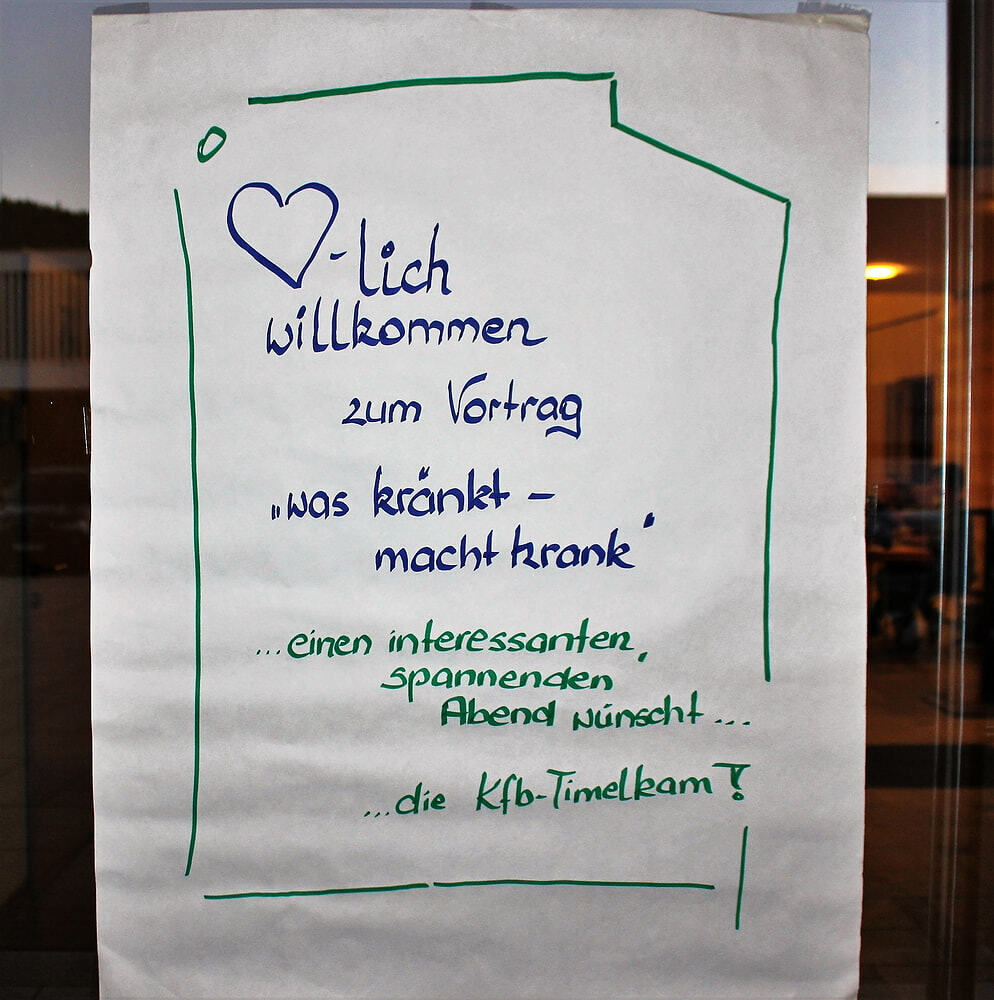 ♡-lich
willkommen
zum Vortrag
„was kränkt –
macht krank"
...einen interessanten,
spannenden
Abend wünscht...
...die Kfb-Timelkam!